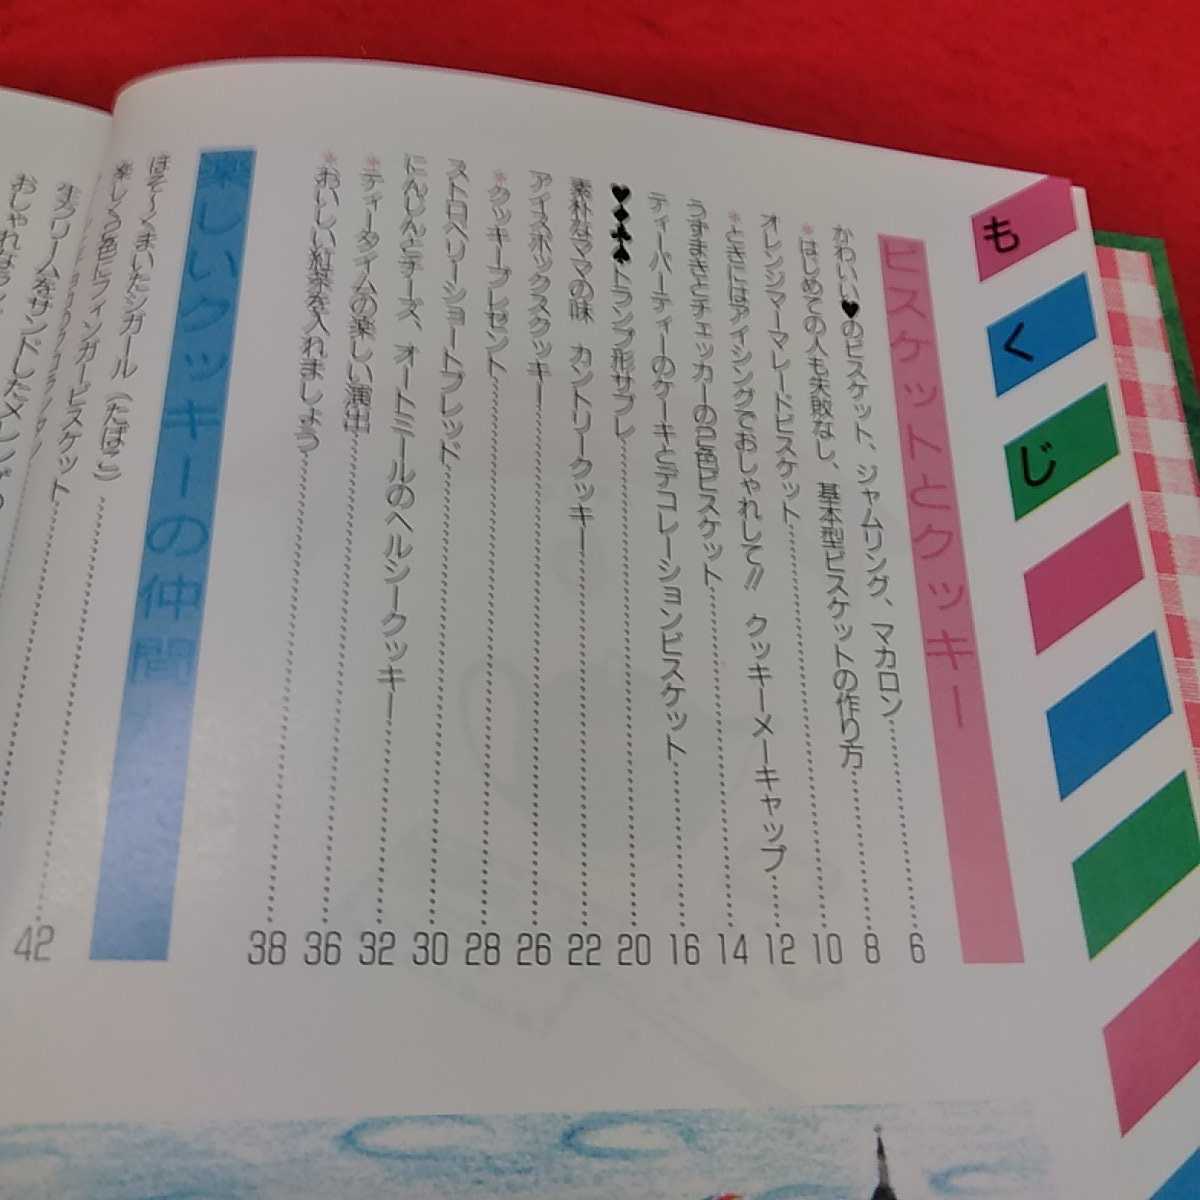 もくじ
ビスケットとクッキー
かわいい♥のビスケット、ジャムリング、マカロン 6
*はじめての人も失敗なし、基本型ビスケットの作り方 8
オレンジマーマレードビスケット 10
*ときにはアイシングでおしゃれして!! クッキーメーキャップ 12
うずまきとチェッカーの2色ビスケット 14
ティーパーティーのケーキとデコレーションビスケット 16
♥♦♣♠トランプ形サブレ 20
素朴なママの味 カントリークッキー 22
アイスボックスクッキー 26
*クッキープレゼント 28
ストロベリーショートブレッド 30
にんじんとチーズ、オートミールのヘルシークッキー 32
*ティータイムの楽しい演出 36
*おいしい紅茶を入れましょう 38
楽しいクッキーの仲間
ほそ〜くまいたシガール(たばこ)
楽しく2色にフィンガービスケット
生クリームをサンドした 42
おしゃれな